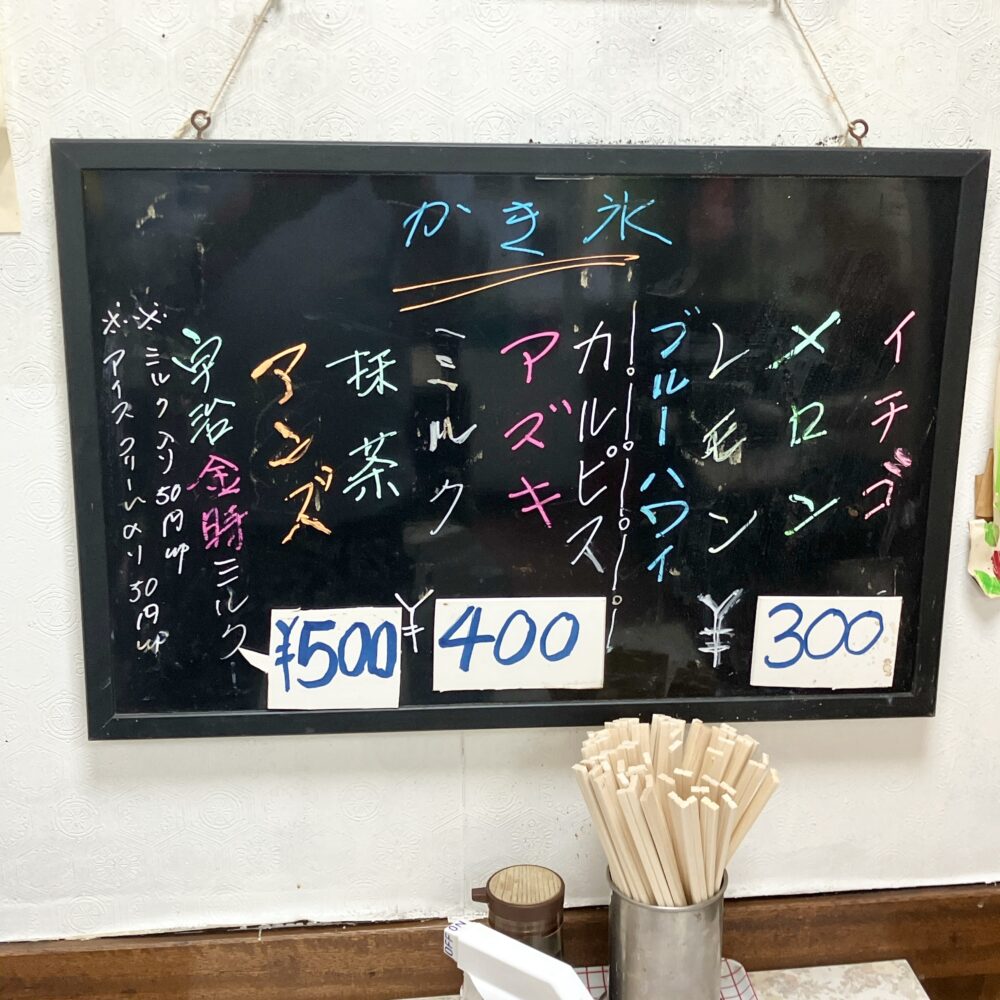 かき氷
イチゴ
メロン
レモン
ブルーハワイ
¥300
カルピス
アズキ
ミルク
抹茶
アンズ
¥400
宇治金時ミルク
¥500
※ミルク入り50円up
※アイスクリーム入り50円up
OFF ON